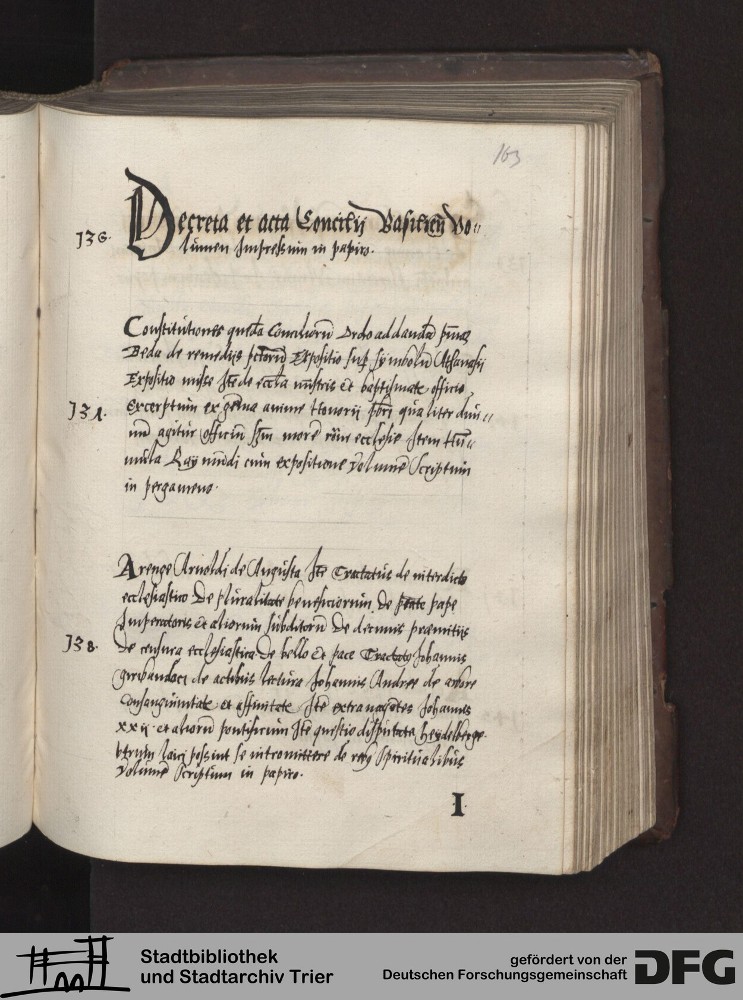 163
136.
Decreta et acta Concilij Basilien̄ Vo„
lumen Impressum in papiro.
Constitutiones queda Conciliorū Ordo ad danda
Beda de remedijs pctorū Expositio sup symbolū Athanasij
Expositio misse Ite de eccla mistris et baptismate officio
131. Excerptum ex gēma anime Honorij qualiter diui„
nū agitur officiū scdm morē rōm ecclesie Item
mula Raymūdi cum expositione Volumē Scriptum
in pergameno.
Arenge Arnoldi de Augusta Ite Tractatus de interdicto
ecclesiastico De pluralitate beneficiorum De ptate pape
Imperatoris et aliorum subditorū De decimis praemitijs
138. De censura ecclesiastica De bello et pace Tractatus Johannis
de actibus lectura Johannis Andree de arbore
consanguinitatis et affinitatis Ite extravagātes Johannis
xxij et aliorū pontificum Ite questio disputata heydelberge
utrum laici possint se intromittere de reb9 spiritualibus
Volumē Scriptum in papiro.
I
Stadtbibliothek
und Stadtarchiv Trier
gefördert von der
Deutschen Forschungsgemeinschaft
DFG